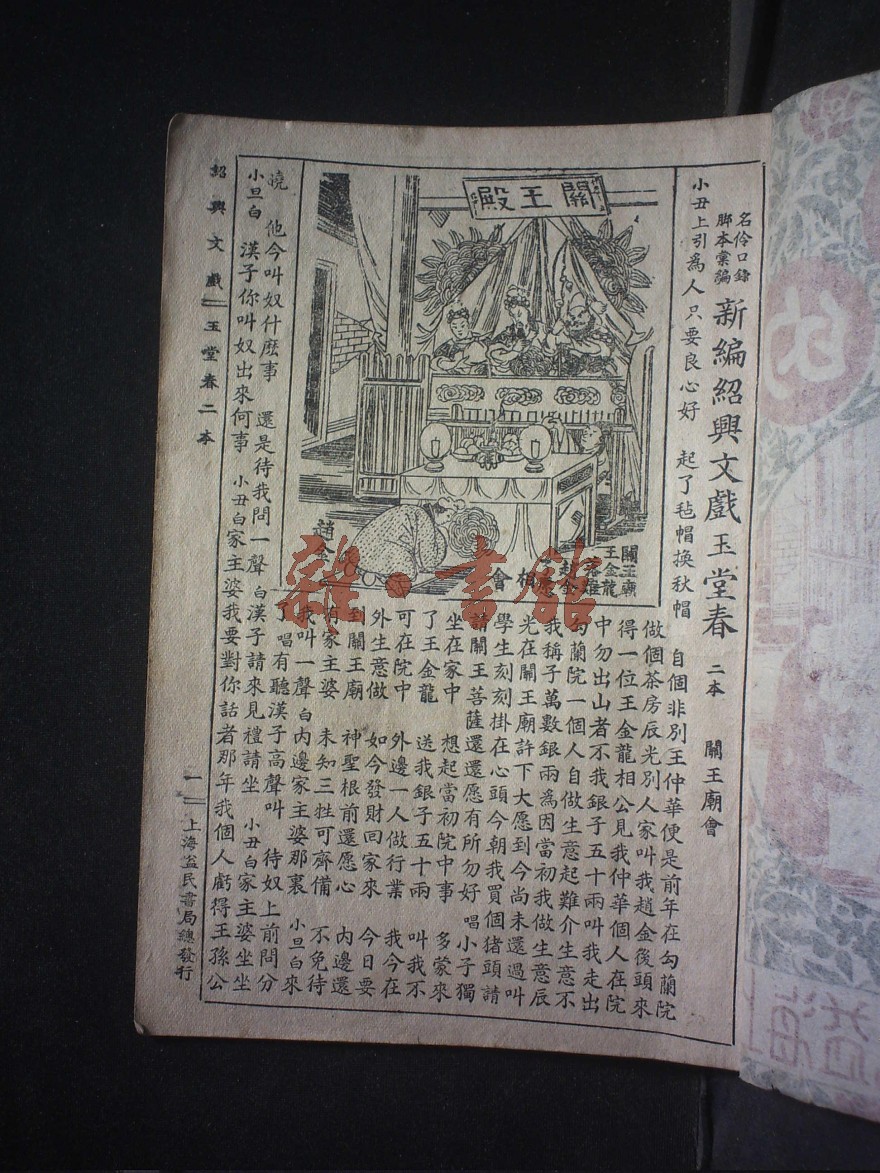 名伶口錄
脚本彙編
新編紹興文戲玉堂春
二本
關王廟會
小丑上引為人只要良心好
起了毡帽換秋帽
自個非別王仲華便是前年在勾蘭院
做個茶房辰光別人家叫我趙金後頭來
得一位王金龍相公見我仲華個人在院
中勿出山者不我銀子五十兩叫我走出
勾蘭院一個人自做生意起難介生意不
我稱子萬數銀兩為因當初我做生意辰
光在關王廟許下大愿到今尚未還過叫
學生刻刻掛在心頭今朝我買個猪頭請
請關王菩薩還還愿有所勿好 唱小子獨
坐在家中 想起當初院中事 多蒙來
了王金龍 送我銀子五十兩 叫我不
可在院中 外邊一人做行業 我今在
外生意做 如今發財回家來 今日要
到關王廟 神聖根前還愿心 內邊還
有家主婆 未知三牲可齊備 不免待
我叫一聲 白內邊家主婆那裏 小旦白來
了 唱有聽漢子高聲叫 待奴上前問分
曉 他今叫奴什麽事 還是待我問一聲 白漢子請來見禮請坐 小丑白家主婆坐坐
小旦白 漢子你叫奴出來何事 小丑白家主婆我要對你話者那年我個人虧得王孫公
關王殿
關王廟
王金龍
落難
趙金
相會
趙金
紹興文戲
玉堂春二本
一
上海益民書局總發行
雜·書館